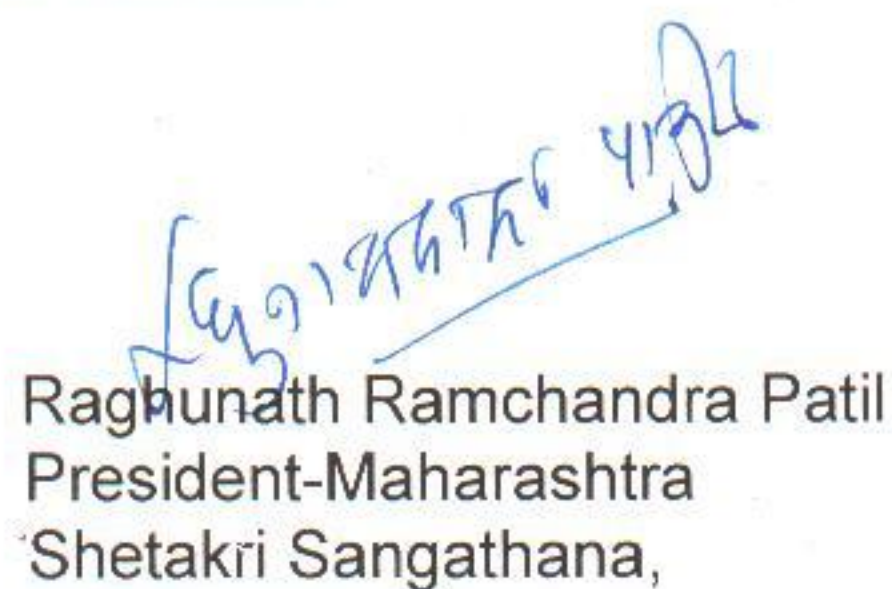 पाटील
Raghunath Ramchandra Patil
President-Maharashtra
Shetakri Sangathana,